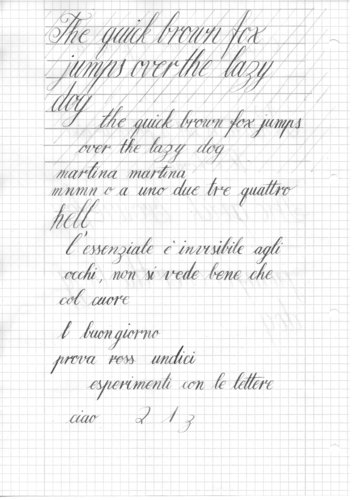 The quick brown fox
jumps over the lazy
dog
the quick brown fox jumps
over the lazy dog
martina martina
mnmn o a uno due tre quattro
hell
l'essenziale è invisibile agli
occhi, non si vede bene che
col cuore
l buongiorno
prova ross undici
esperimenti con le lettere
ciao 2 1 3